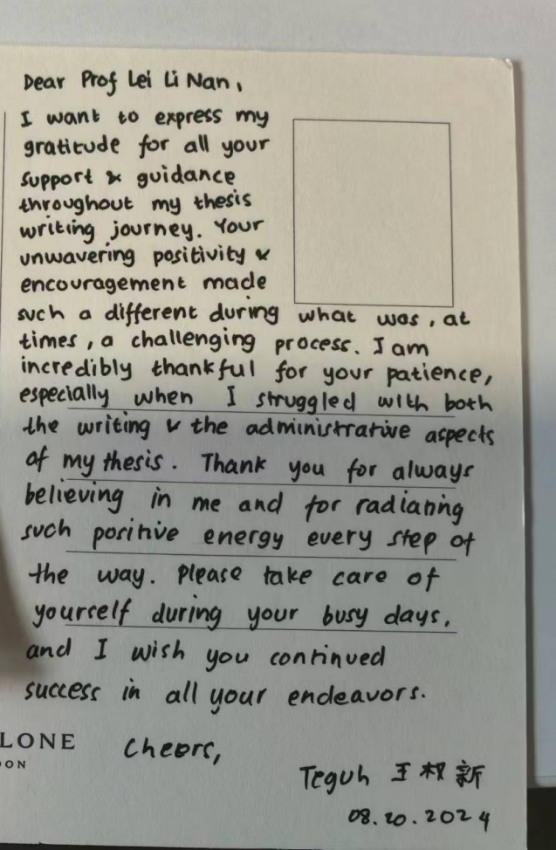 Dear Prof Lei Li Nan,
I want to express my
gratitude for all your
support & guidance
throughout my thesis
writing journey. Your
unwavering positivity &
encouragement made
such a different during what was, at
times, a challenging process. I am
incredibly thankful for your patience,
especially when I struggled with both
the writing & the administrative aspects
of my thesis. Thank you for always
believing in me and for radiating
such positive energy every step of
the way. Please take care of
yourself during your busy days,
and I wish you continued
success in all your endeavors.
LONE
ON
Cheers,
Teguh 王权新
08.20.2024